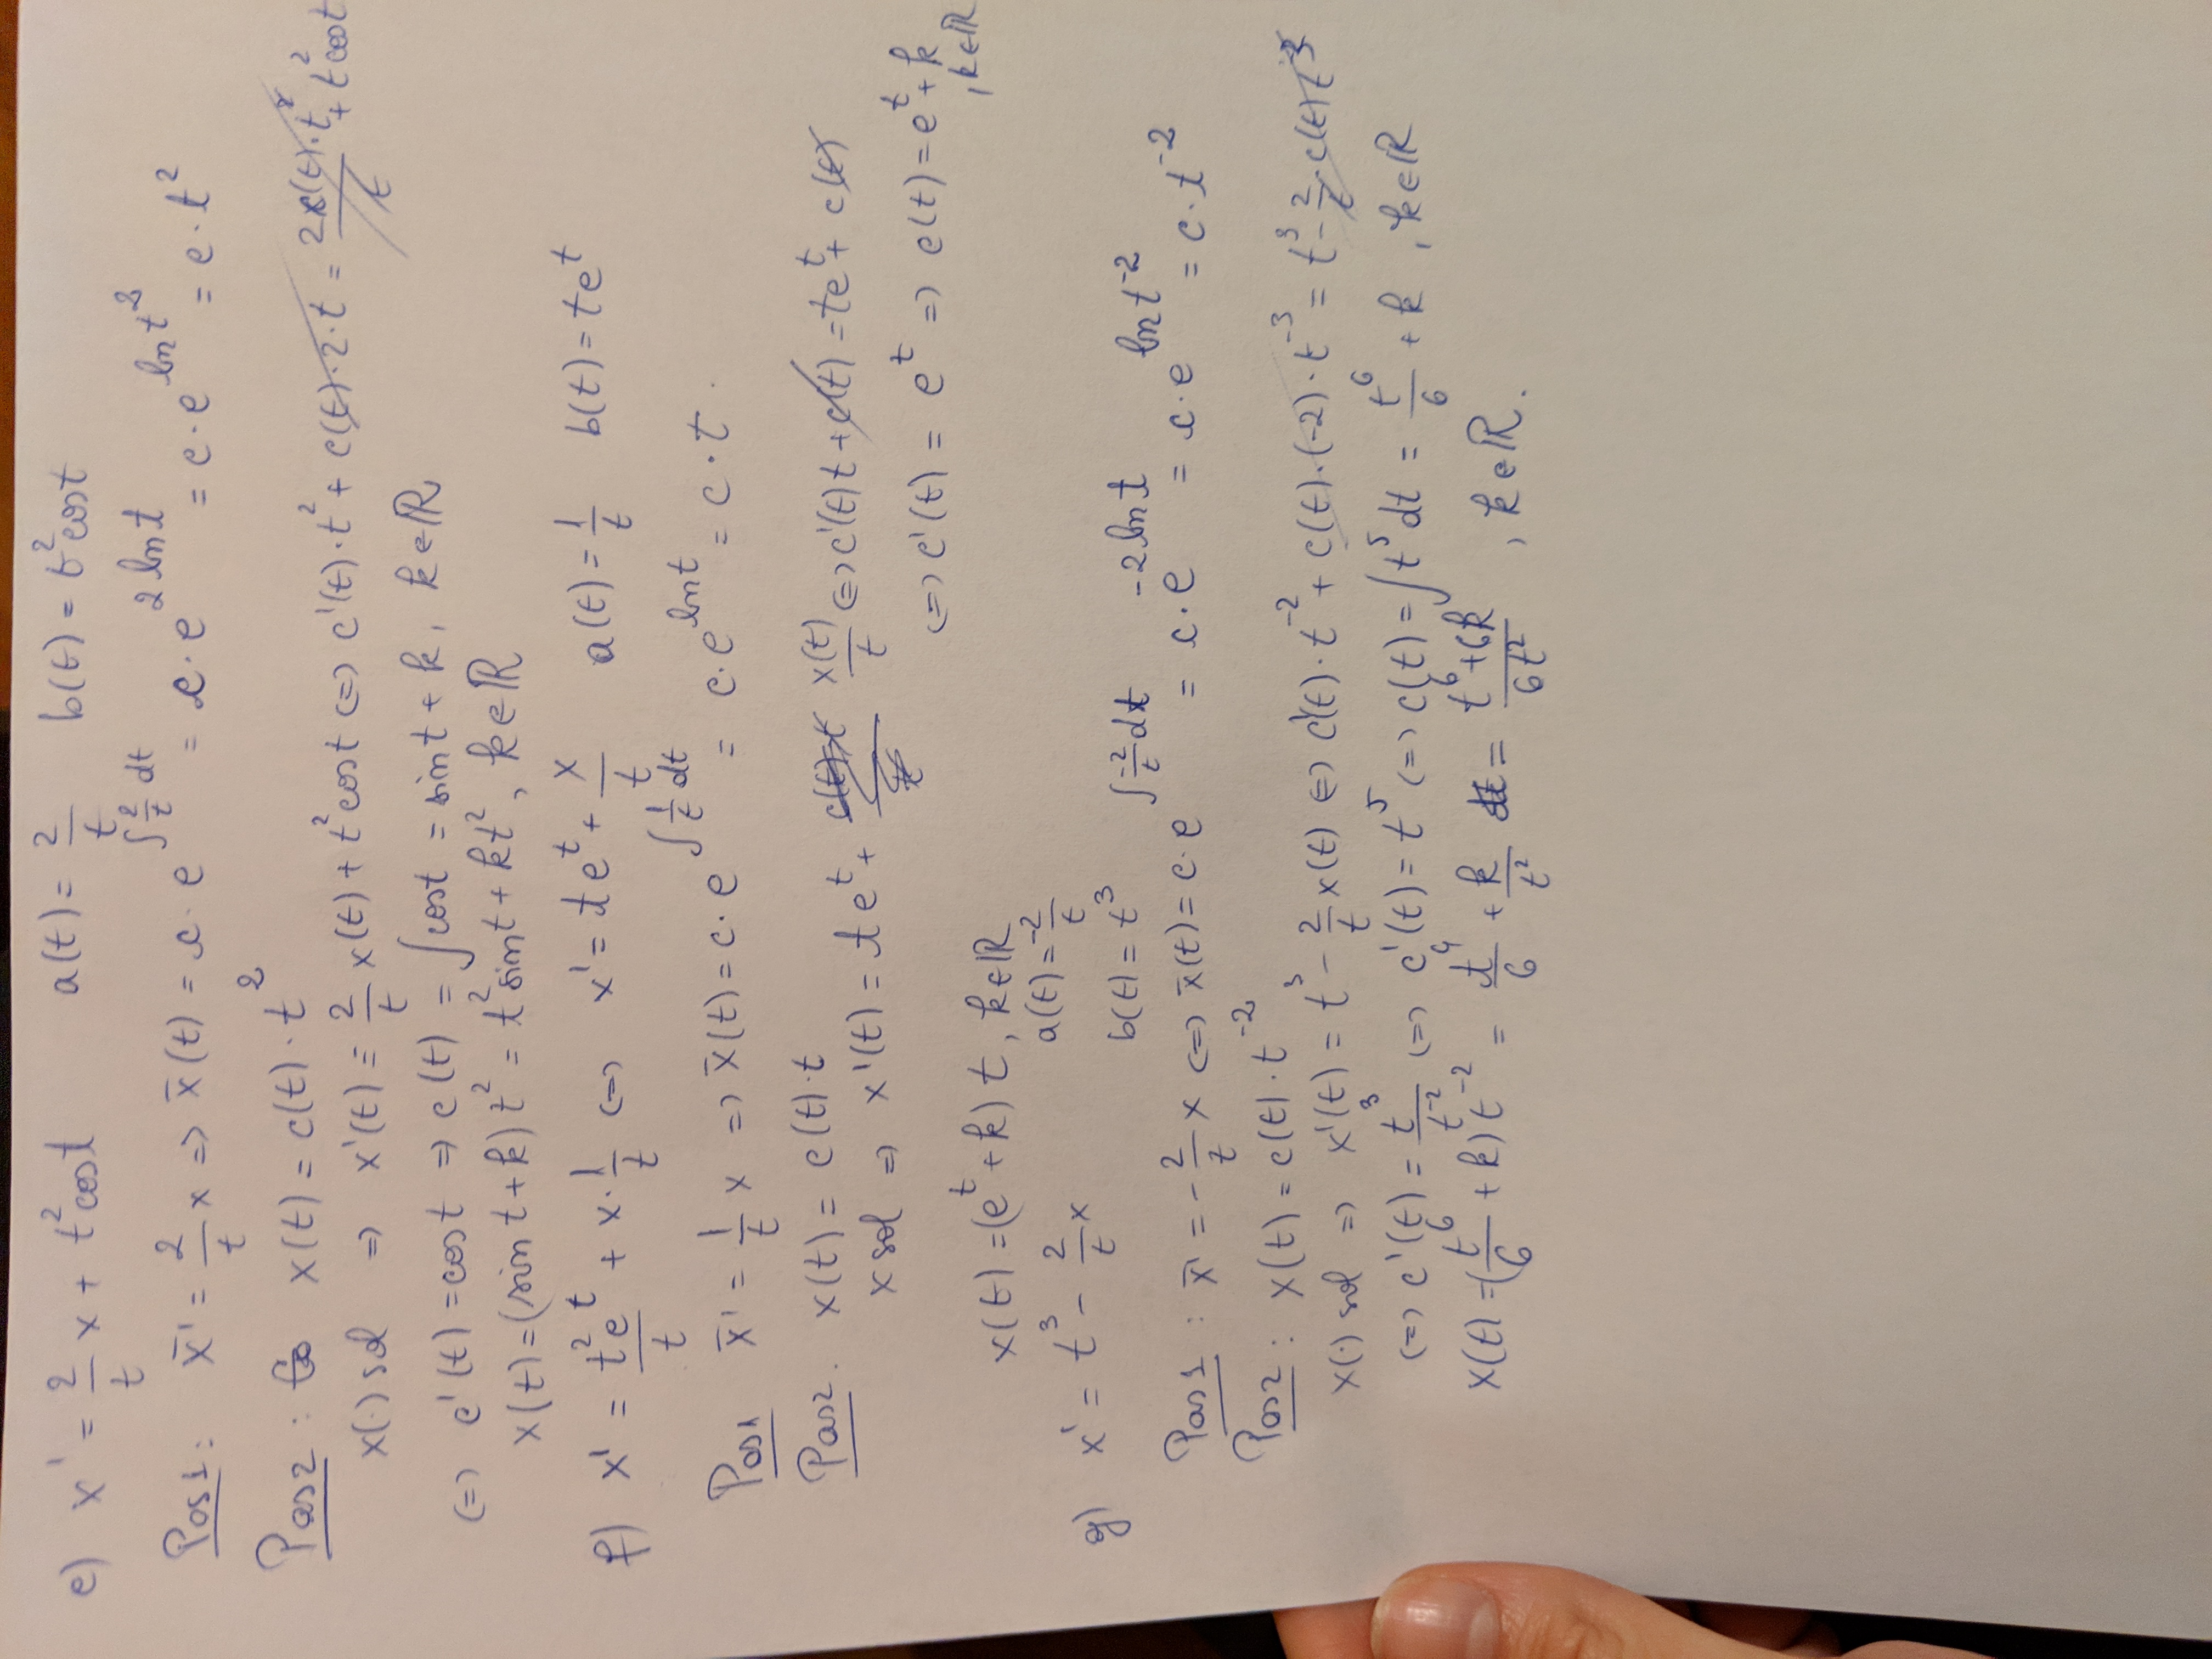 e) x' = 2/t x + t² cos t   a(t) = 2/t   b(t) = t² cos t
Pas1: x̄' = 2/t x => x̄(t) = c · e^(∫ 2/t dt) = c · e^(2 ln t) = c · e^(ln t²) = c · t²
Pas2: x(t) = c(t) · t²
x(·) sol => x'(t) = 2/t x(t) + t² cos t <=> c'(t) · t² + c(t) · 2 · t = 2c(t) · t²/t + t² cos t
<=> c'(t) = cos t => c(t) = ∫ cos t = sin t + k, k∈ℝ
x(t) = (sin t + k) t² = t² sin t + kt², k∈ℝ
f) x' = t²e^t/t + x · 1/t <=> x' = te^t + x/t   a(t) = 1/t   b(t) = te^t
Pas1 x̄' = 1/t x => x̄(t) = c · e^(∫ 1/t dt) = c · e^(ln t) = c · t
Pas2. x(t) = c(t) · t
x sol => x'(t) = te^t + x(t)/t <=> c'(t) t + c(t) = te^t + c(t)
<=> c'(t) = e^t => c(t) = e^t + k
, k∈ℝ
x(t) = (e^t + k) t, k∈ℝ
g) x' = t³ - 2/t x   a(t) = -2/t
b(t) = t³
Pas1: x̄' = -2/t x <=> x̄(t) = c · e^(∫ -2/t dt) = c · e^(-2 ln t) = c · e^(ln t^-2) = c · t^-2
Pas2: x(t) = c(t) · t^-2
x(·) sol => x'(t) = t³ - 2/t x(t) <=> c'(t) · t^-2 + c(t) · (-2) · t^-3 = t³ - 2/t · c(t) t
<=> c'(t) = t³/t^-2 <=> c'(t) = t⁵ <=> c(t) = ∫ t⁵ dt = t⁶/6 + k, k∈ℝ
x(t) = (t⁶/6 + k) t^-2 = t⁴/6 + k/t² = t⁶+6k/6t², k∈ℝ.